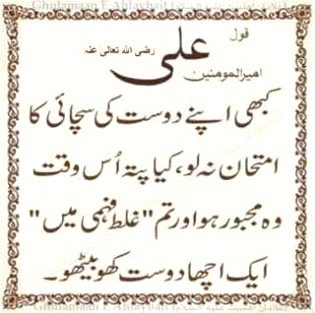 Ghulamaan E Ahlaybait
قول
علی رضی اللہ تعالی عنہ
امیرالمومنین
کبھی اپنے دوست کی سچائی کا
امتحان نہ لو، کیا پتہ اُس وقت
وہ مجبور ہو اور تم "غلط فہمی میں"
ایک اچھا دوست کھو بیٹھو۔